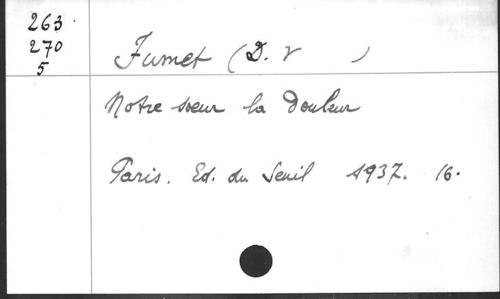 263.
270
5
Fumet (D. V )
Notre soeur la Douleur
Paris. Ed. du Seuil 1937. 16.